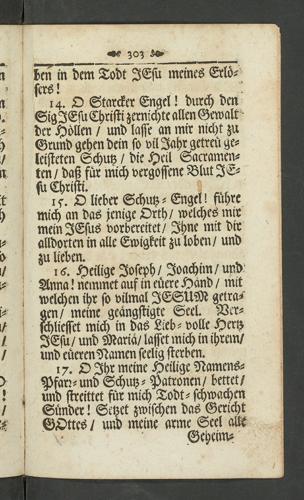 303
ben in dem Todt JEsu meines Erlö-
sers!
14. O Starcker Engel! durch den
Sig JEsu Christi zernichte allen Gewalt
der Höllen/ und lasse an mir nicht zu
Grund gehen dein so vil Jahr getreü ge-
leisteten Schutz/ die Heil Sacramen-
ten/ daß für mich vergossene Blut JE-
su Christi.
15. O lieber Schutz-Engel! führe
mich an das jenige Orth/ welches mir
mein JEsus vorbereitet/ Ihne mit dir
alldorten in alle Ewigkeit zu loben/ und
zu lieben.
16. Heilige Joseph/ Joachim/ und
Anna! nemmet auf in eüere Händ/ mit
welchen ihr so vilmal JESUM getra-
gen/ meine geängstigte Seel. Ver-
schliesset mich in das Lieb-volle Hertz
JEsu/ und Mariä/ lasset mich in ihrem/
und eüeren Namen seelig sterben.
17. O Ihr meine Heilige Namens-
Pfarr- und Schutz-Patronen/ bettet/
und streittet für mich Todt-schwachen
Sünder! Setzet zwischen das Gericht
GOttes/ und meine arme Seel alle
Geheim-